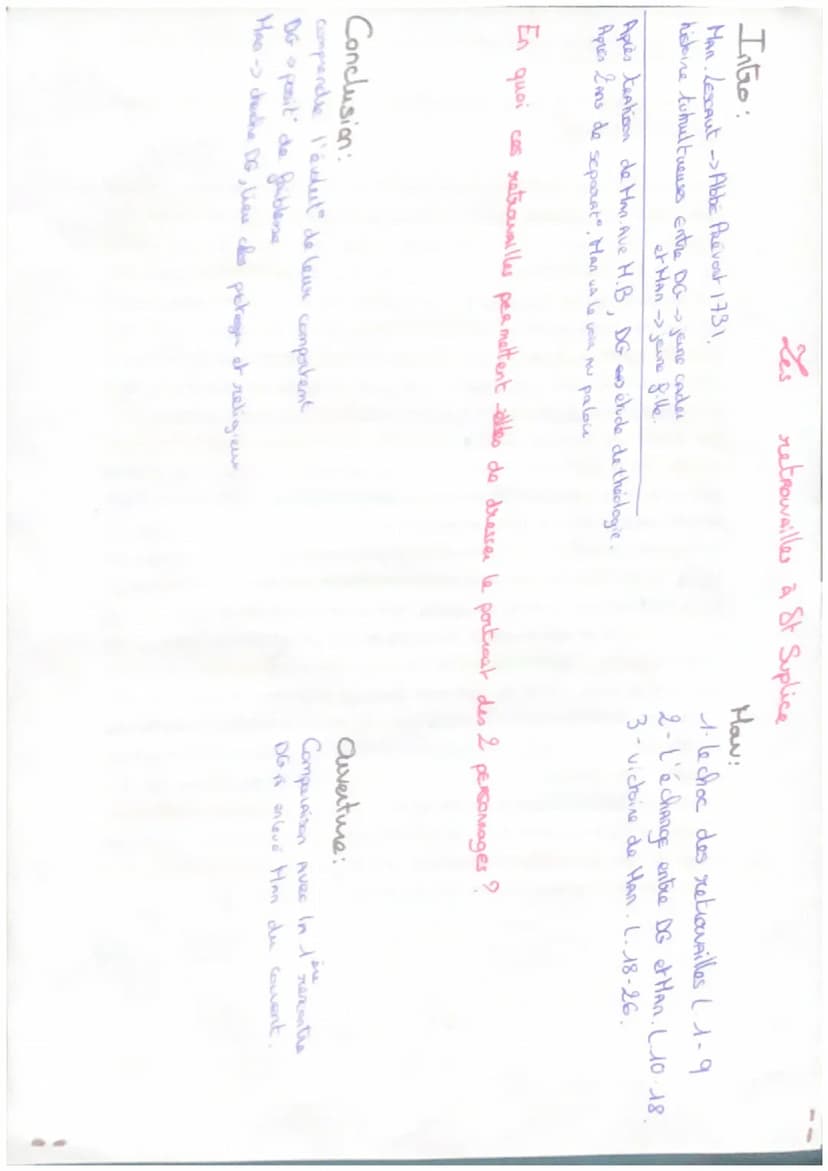 Les retrouvailles à St Suplice
Intro :
Man. Lescaut -> Abbé Prévost 1731.
histoire tumultueuses entre DG -> jeune
et Man -> jeune fille.
Après de Man. Ave M.B, DG étude de théologie.
Après 2 ans de separat°, Man va le voir au paloir
Mouv:
1. le choc des retrouvailles L 1-9
2 - L'échange entre DG et Man. L 10-18.
3 - victoire de Man. L. 18-26.
En quoi ces retrouvailles permettent-elles de dresser le portrait des 2 personnages ?
Conclusion :
comprendre l'évolut° de leur comportemt
DG -> posit° de faiblesse
Man -> cherche DG, lieu clos et religieux
Ouverture :
Comparaison avec la 1ère rencontre
DG a enlevé Man du couvent.